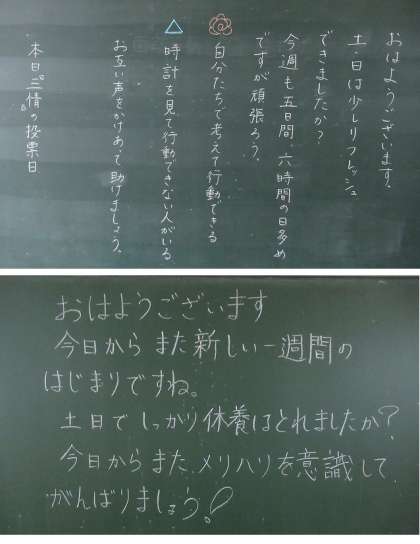 おはようございます。
土、日は少しリフレッシュ
できましたか？
今週も五日間、六時間の日多め
ですが頑張ろう。
自分たちで考えて行動できる
時計を見て行動できない人がいる
お互い声をかけあって助けましょう。
本日 の投票日
おはようございます
今日から また新しい一週間の
はじまりですね。
土日で しっかり休養はとれましたか？
今日から また メリハリを意識して
がんばりましょう！